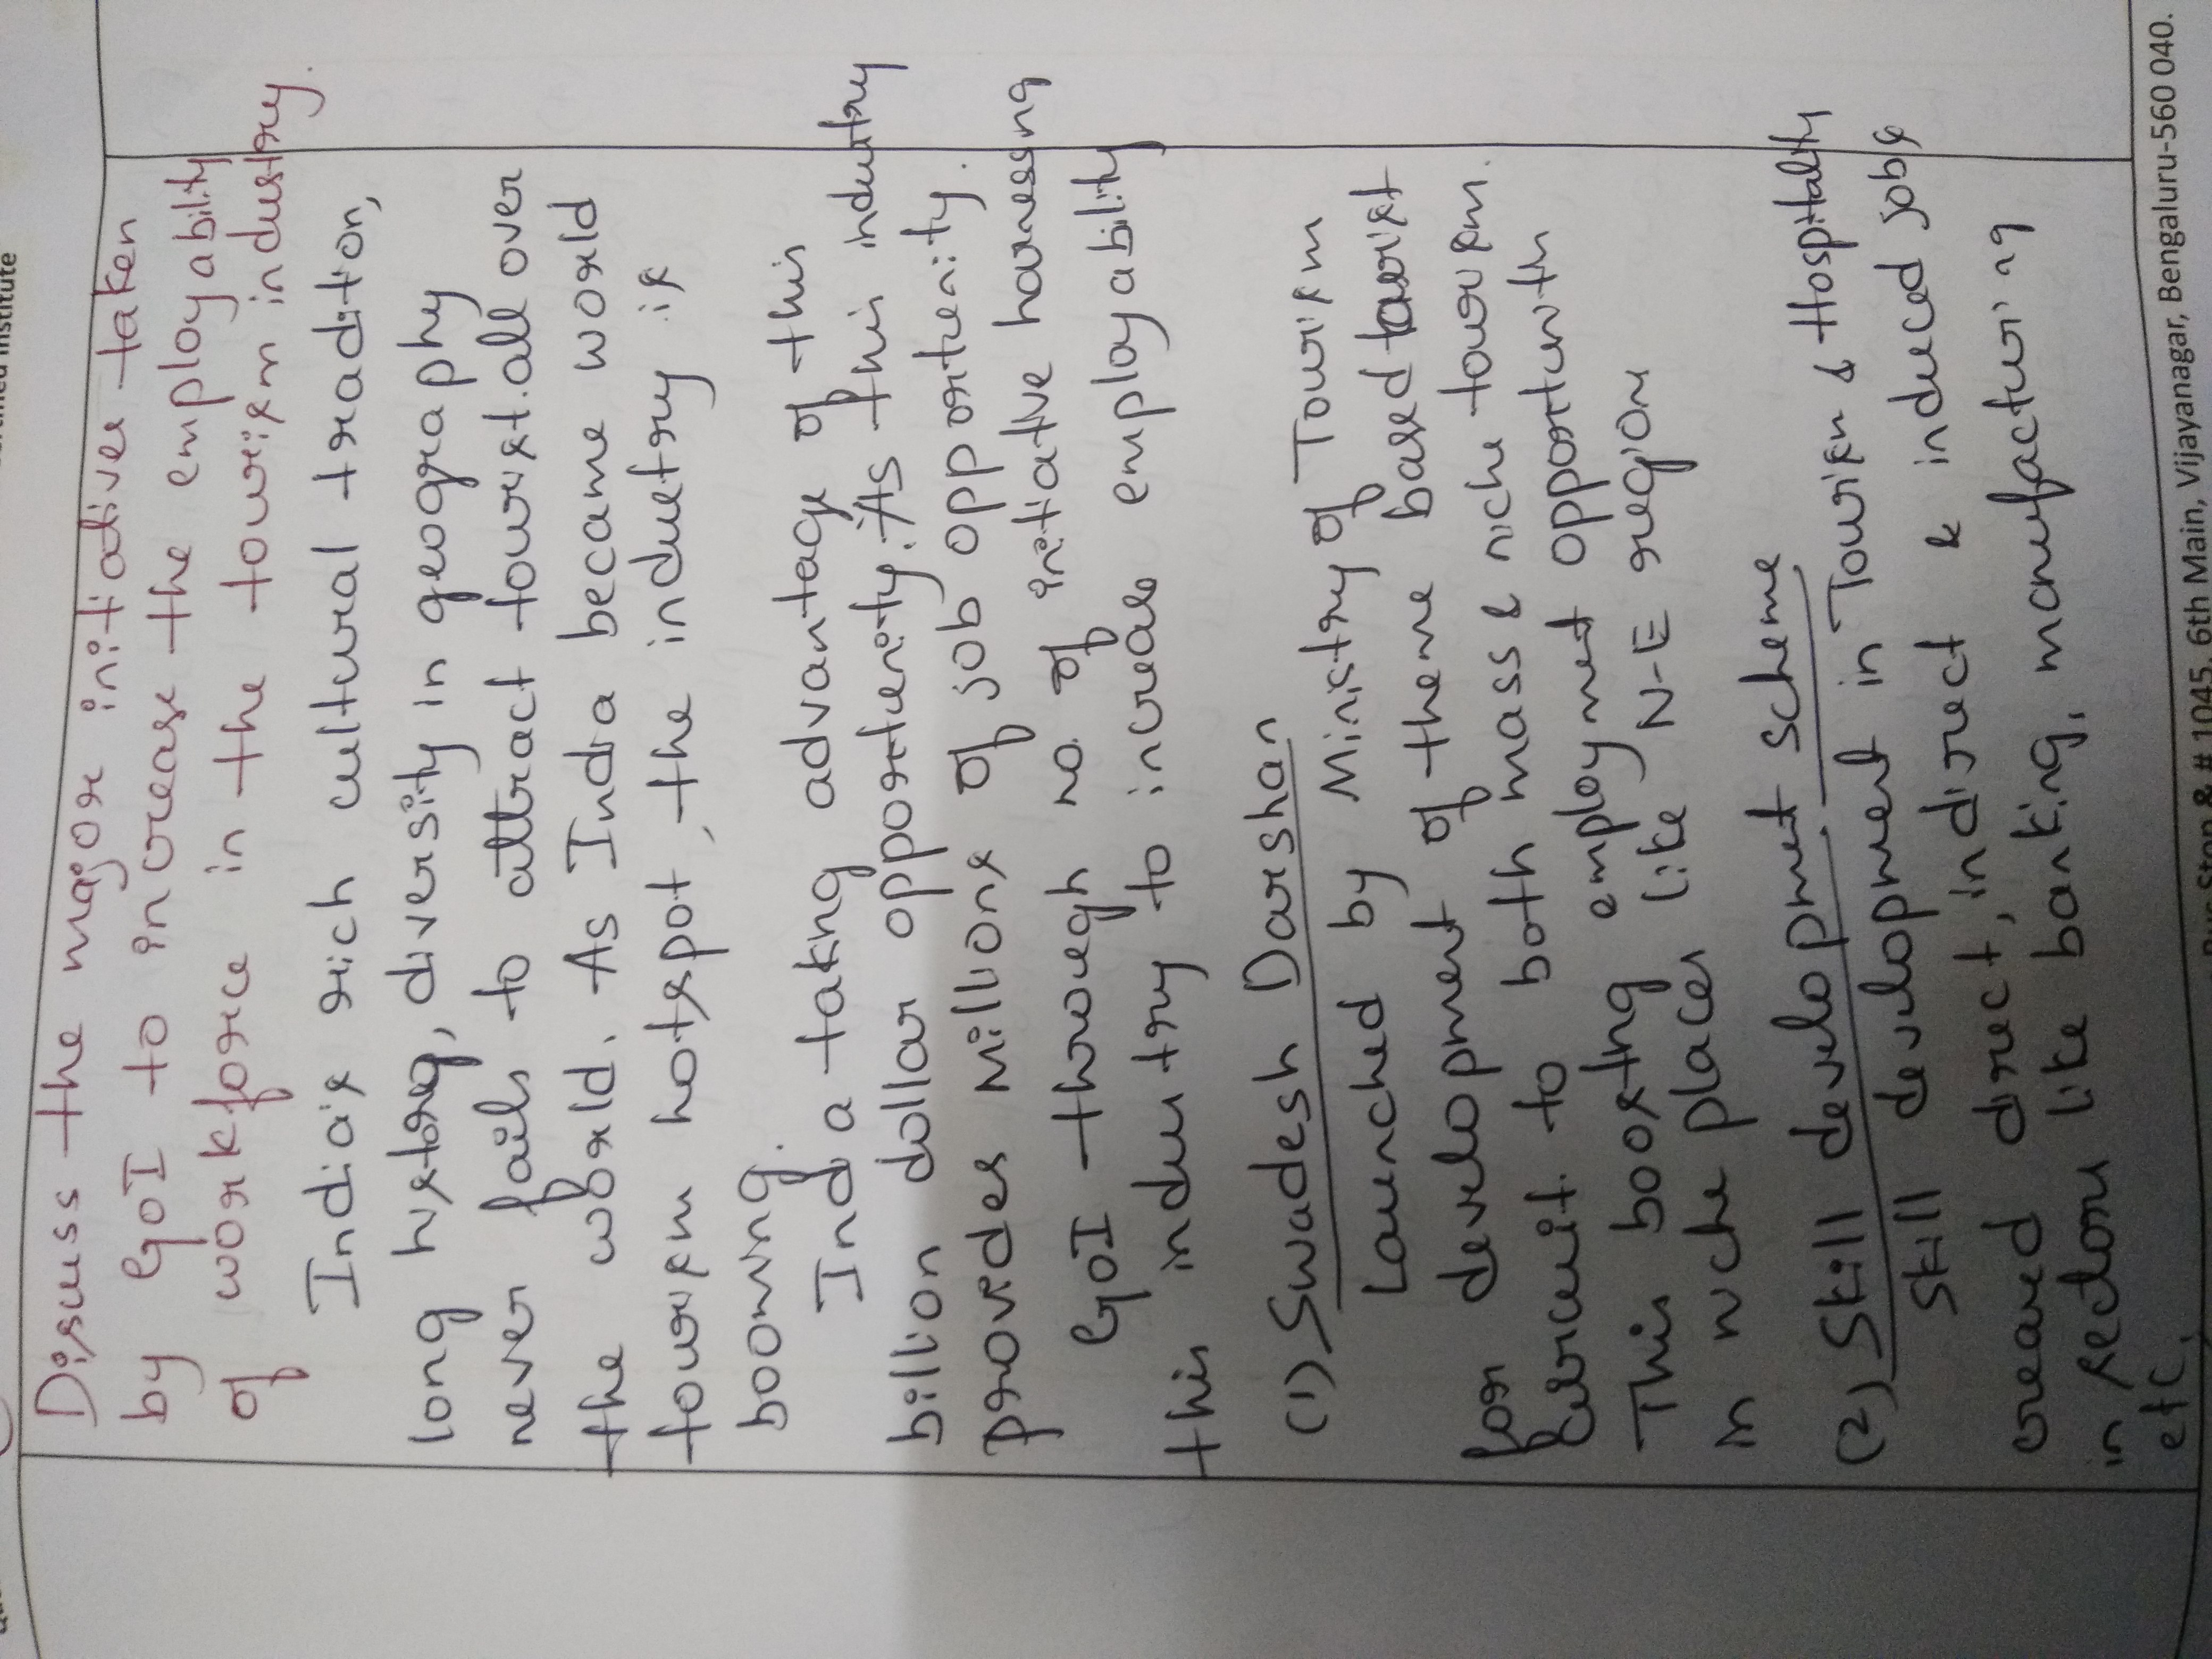 Institute
Discuss the major initiatives taken
by GoI to increase the employability
of workforce in the tourism industry.
India's rich cultural tradition,
long history, diversity in geography
never fails to attract tourist all over
the world. As India became world
tourism hotspot, the industry is
booming.
India taking advantage of this
billion dollar opportunity. As this industry
provides millions of job opportunity.
GoI through no of initiative harnessing
this industry to increase employability
(1) Swadesh Darshan
Launched by Ministry of Tourism
for development of theme based tourist
circuit. to both mass & niche tourism.
This boosting employment opportunity
in niche places like N-E region
(2) Skill development scheme
Skill development in Tourism & Hospitality
created direct, indirect & induced jobs
in sectors like banking, manufacturing
etc.
Stop & # 1045, 6th Main, Vijayanagar, Bengaluru-560 040.